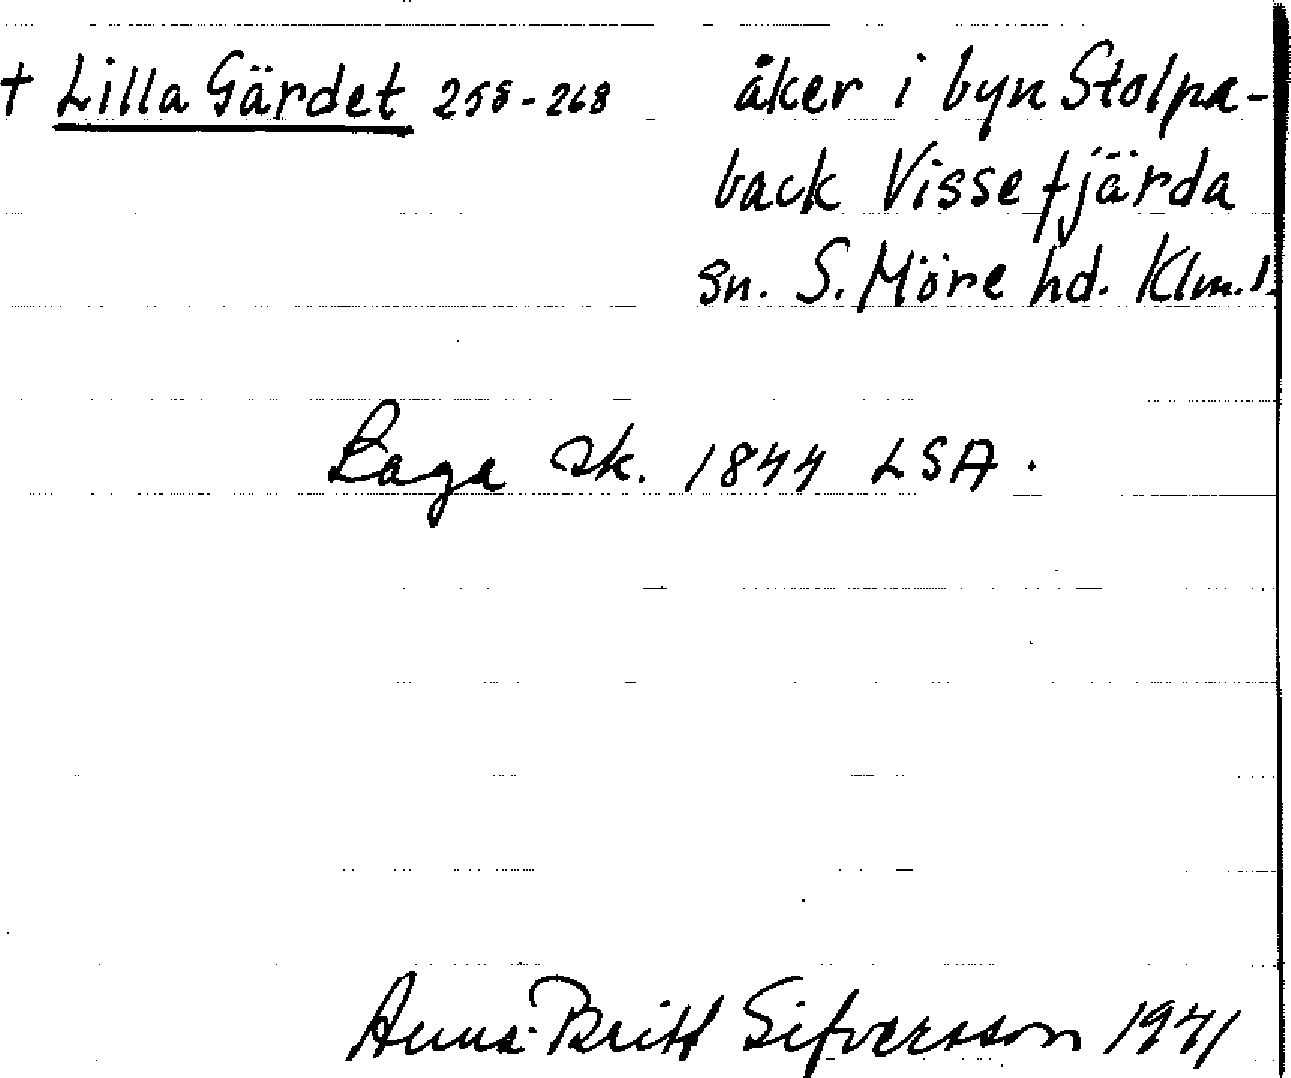 † Lilla Gärdet 258-268 åker i byn Stolpa-
back Vissefjärda
sn. S. Möre hd. Klm. l.
Laga sk. 1844 LSA.
Anna-Britt Sifversson 1971